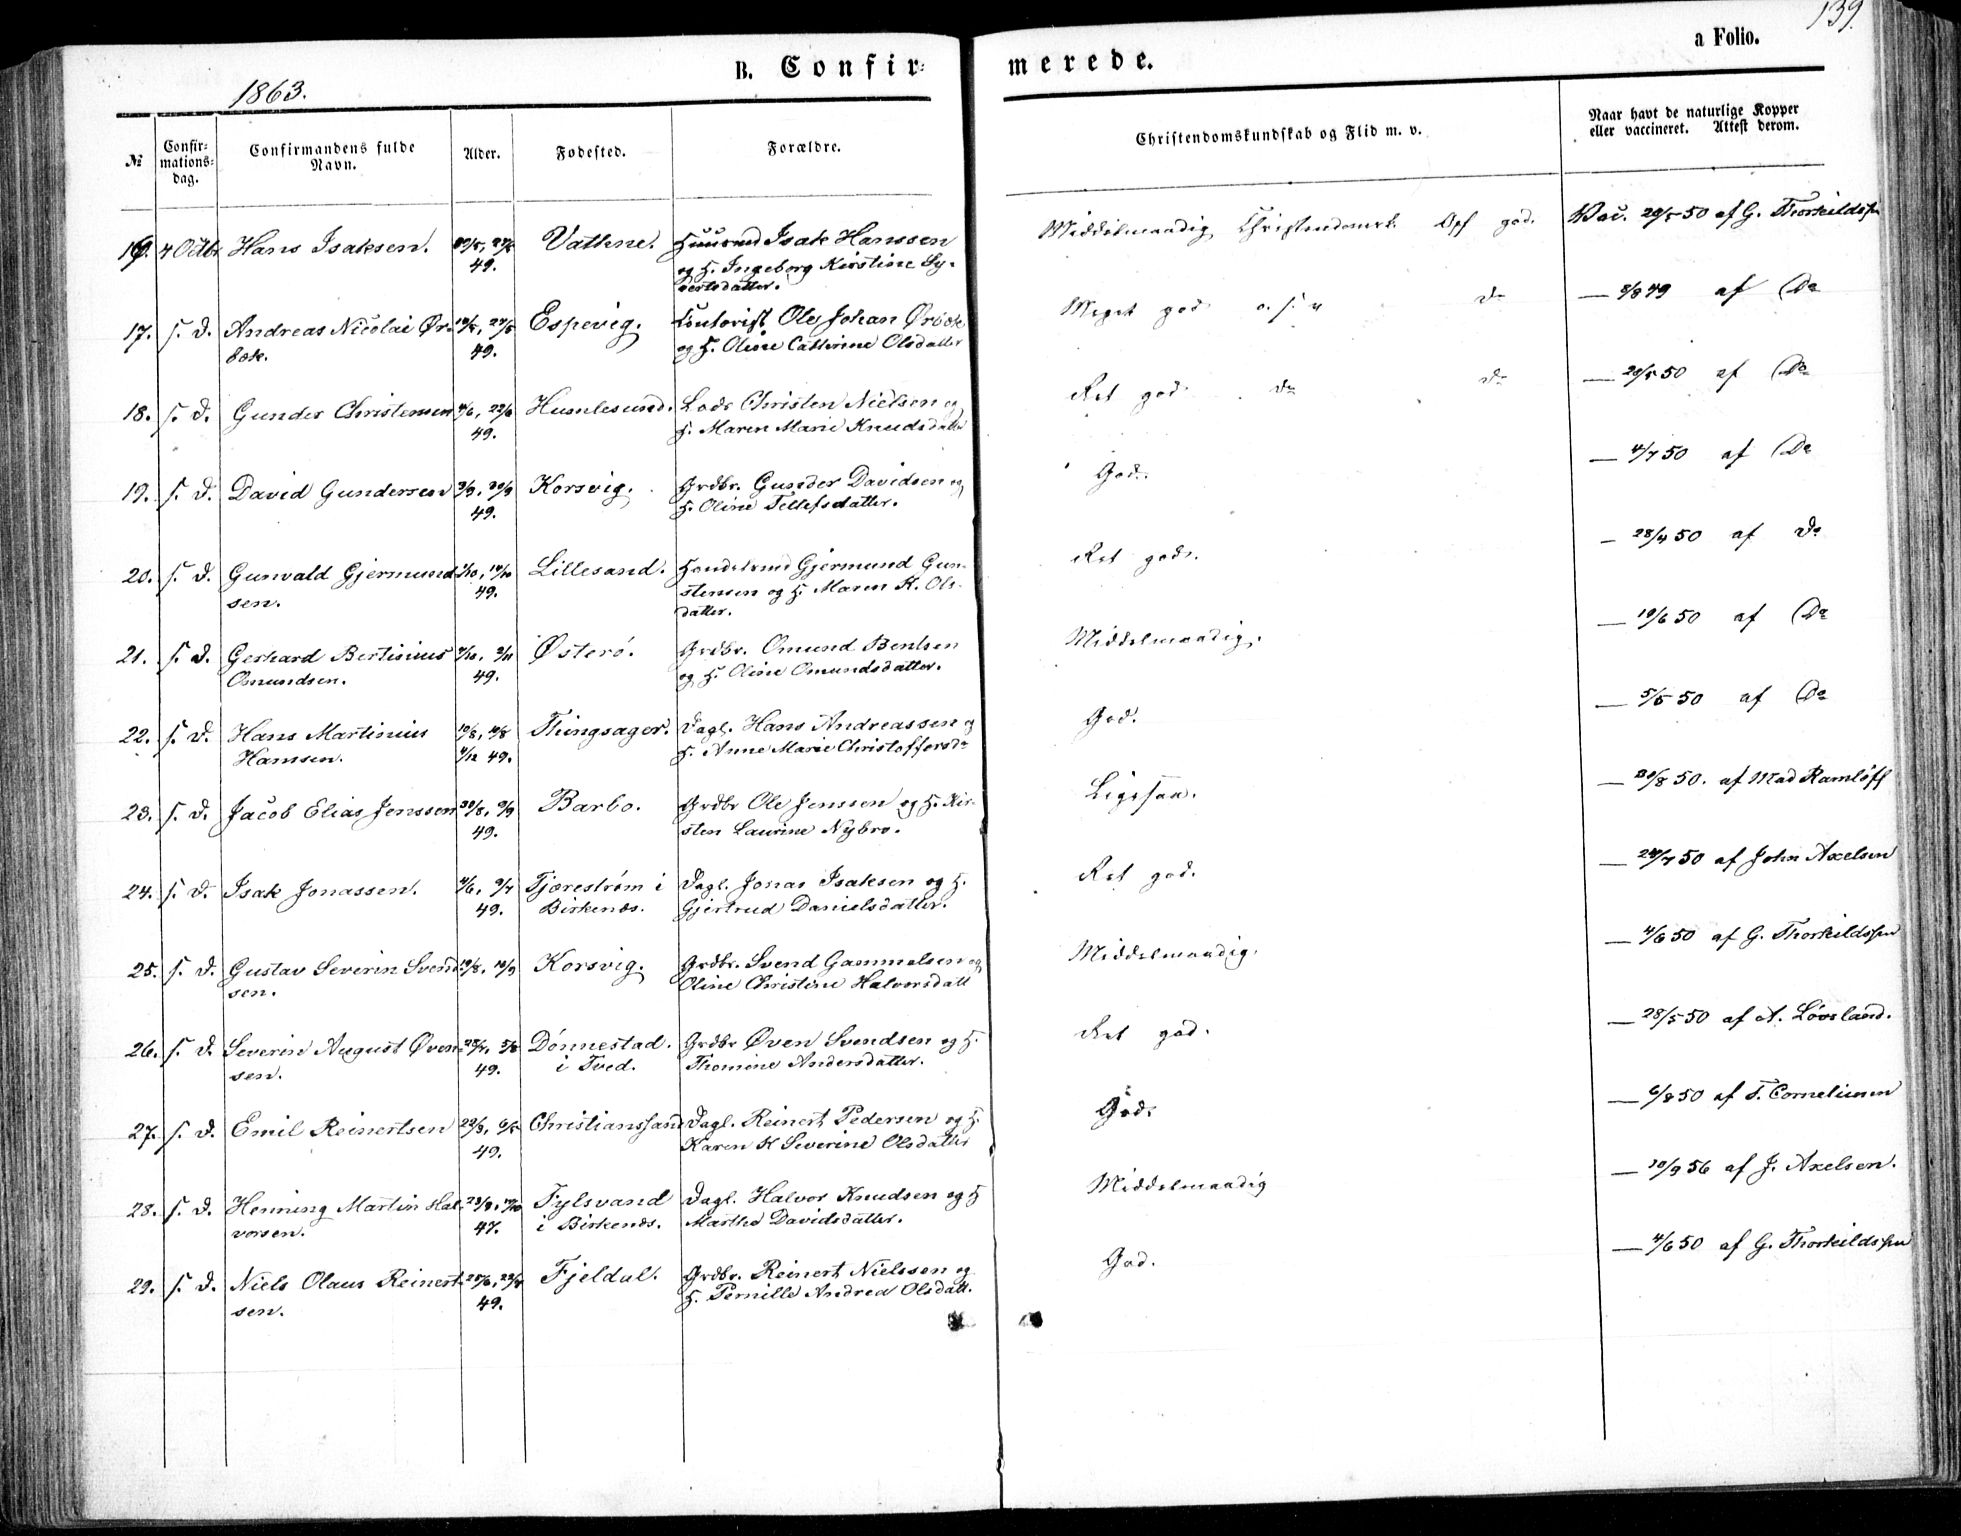 139.
B. Confir=
merede.
a Folio.
1863.
№
Confir-
mations-
dag.
Confirmandens fulde
Navn.
Alder.
Fødested.
Forældre.
Christendomskundskab og Flid m. v.
Naar havt de naturlige Kopper
eller vaccineret. Attest derom.
16. 4 Octbr. Hans Isaksen. 49. Vathne. Isak Hanssen
og H. Ingeborg Kirstine Sy-
vertsdatter.
Middelmaadig Christendomsk. Opf god. Vac. 29/5 50 af G. Thorkildssen
17. s. d. Andreas Nicolai Ør-
bæk. 49. Espevig. Contorist Ole Johan Ørbæk
og H. Oline Cathrine Olsdatter
Meget god do — 8/8 49 af Do
18. s. d. Gunder Christensen 4/6, 22/6
49. Humlesund. Lods Christen Nielsen og
H. Maren Marie Knudsdatter
Ret god do do — 29/5 50 af Do
19. s. d. David Gundersen 3/9, 30/9
49. Korsvig. Grdbr. Gunder Davidsen og
H. Oline Tellefsdatter.
God. — 4/7 50 af Do
20. s. d. Gunvald Gjermund-
sen. 49. Lillesand. Gjermund Gun-
stensen og H. Maren K. Ols-
datter.
Ret god. — 28/4 50 af Do
21. s. d. Gerhard Bertinius
Omundsen. 49. Østerø. Grdbr. Omund Bentsen
og H. Oline Omundsdatter.
Middelmaadig. — 19/6 50 af Do
22. s. d. Hans Martinius
Hansen. 49. Thingsager. Dagl. Hans Andreassen og
H. Anne Marie Christoffersdr
God. — 5/5 50 af Do
23. s. d. Jacob Elias Jenssen 49. Barbo. Grdbr Ole Jenssen og H. Kir-
sten Laurine Nybro.
Ligesaa. — 20/8 50. af Mad Ramløff
24. s. d. Isak Jonassen. 49. Tjærestrøm i
Birkenes. Dagl. Jonas Isaksen og H.
Gjertrud Danielsdatter.
Ret god. — 24/7 50 af John Axelsen
25. s. d. Gustav Severin Svend-
sen. 19/8, 19/9 Korsvig. Grdbr. Svend Gammelsen og
Oline Christine Halvorsdatt
Middelmaadig. — 4/6 50 af G. Thorkildssen
26. s. d. Severin August Øven-
sen. 49. Dønnestad.
i Tved. Grdbr Øven Svendsen og H.
Thomine Andersdatter.
Ret god. — 28/5 50 af A. Løvsland.
27. s. d. Emil Reinertsen 49. Christianssand Dagl. Reinert Pedersen og H.
Karen K Severine Olsdatter
God. — 6/8 50 af T. Corneliussen
28. s. d. Henning Martin Hal-
vorsen. 47. Fylsvand
i Birkenes. Dagl. Halvor Knudsen og H
Marthe Davidsdatter.
Middelmaadig — 10/9 56 af J. Axelsen.
29. s. d. Niels Olaus Reinert-
sen. 49. Fjeldal. Grdbr. Reinert Nielssen og
H. Pernille Andrea Olsdatt.
God. — 4/6 50 af G. Thorkildssen